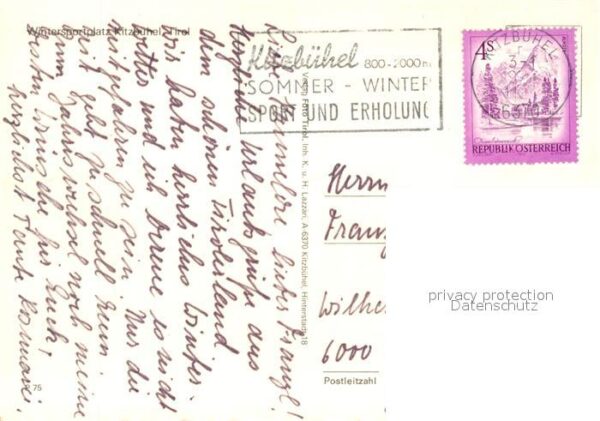 Wintersportplatz Kitzbühel, Tirol
Liebe Hannelore, lieber Franzl!
Herzliche Urlaubsgrüße aus
dem schönen Tirolerland
Wir haben herrliches Winter-
wetter und ich bereue es nicht
mitgefahren zu sein. Nur die
Zeit geht zu schnell. Zum
Jahreswechsel noch meine
besten Wünsche für Euch!
herzlichst Tante Rosmarie.
75
Verlag Foto Tirol, Inh. K. u. H. Lazzari, A-6370 Kitzbühel, Hinterstadt 18
Kitzbühel 800-2000 m
SOMMER - WINTER
SPORT UND ERHOLUNG
KITZBÜHEL
6370
4 S
REPUBLIK ÖSTERREICH
Herrn
Franz
Wilhe
6000
Postleitzahl
privacy protection
Datenschutz